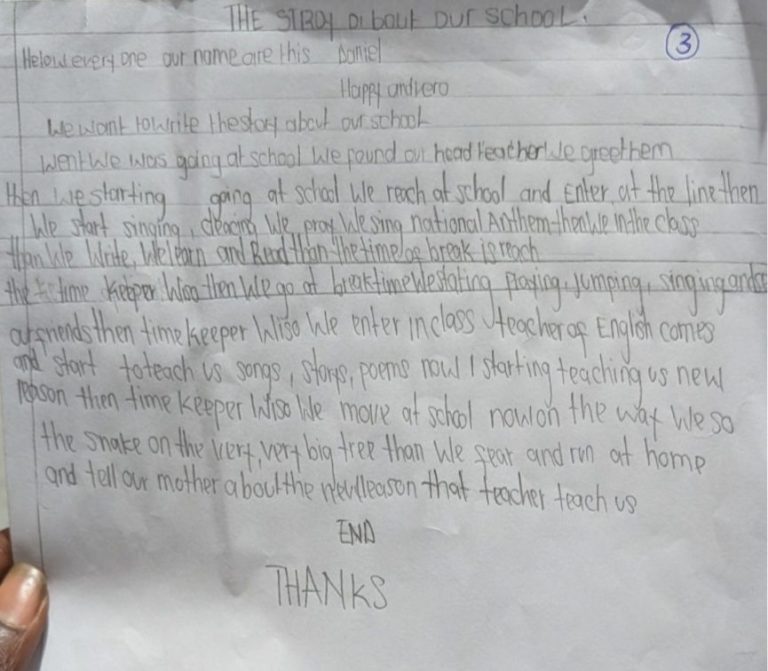 THE STROY about our school.
3
Helow every one our name are this Daniel
Happy and vero
We want to write the story about our school
Went We was going at school We found our head teacher We greet hem
then We starting going at school We reach at school and Enter at the line then
We start singing, deacing We pray We sing national Anthem then We in the class
than We Write, We learn and Read than the time of break is reach
the time keeper Wiso then We go at break time We stating playing, jumping, singing and
ar friends then time keeper Wiso We enter in class teacher of English comes
and start to teach us songs, storys, poems now I starting teaching us new
reason then time keeper Wiso We move at school now on the way We so
the snake on the very, very big tree than We fear and run at home
and tell our mother about the new leason that teacher teach us
END
THANKS